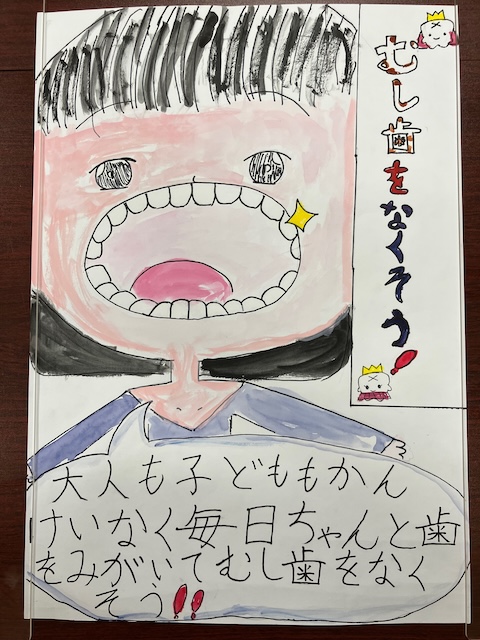 むし歯をなくそう!
大人も子どももかん
けいなく毎日ちゃんと歯
をみがいてむし歯をなく
そう!!